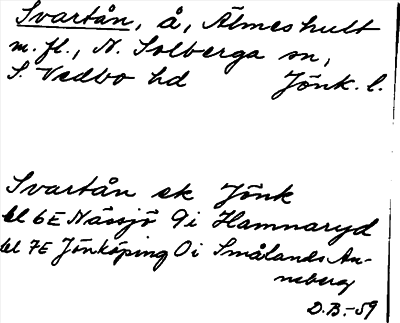 Svartån, å, Älmeshult
m.fl., N. Solberga sn,
S. Vedbo hd Jönk. l.
Svartån ek Jönk
bl 6E Nässjö 9i Hamnaryd
bl 7E Jönköping 0i Smålands An-
neberg
D.B.-59